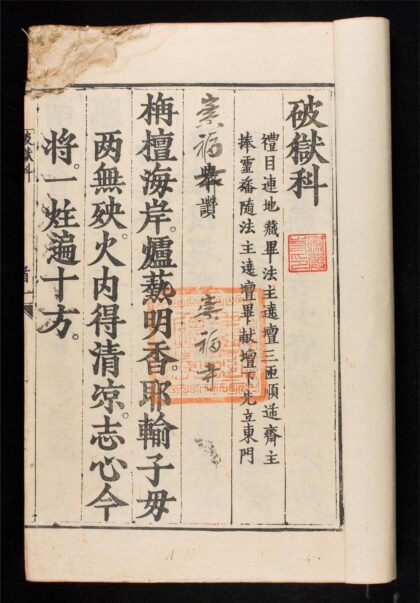 破獄科
禮目連地藏畢法主遶壇三匝順齋主
捧靈旛隨法主遶壇畢献壇下先立東門
崇福
讚
崇福寺
栴檀海岸。爐爇明香。耶輸子毋
两無殃。火内得清凉。志心今
将。一炷遍十方。
破獄科